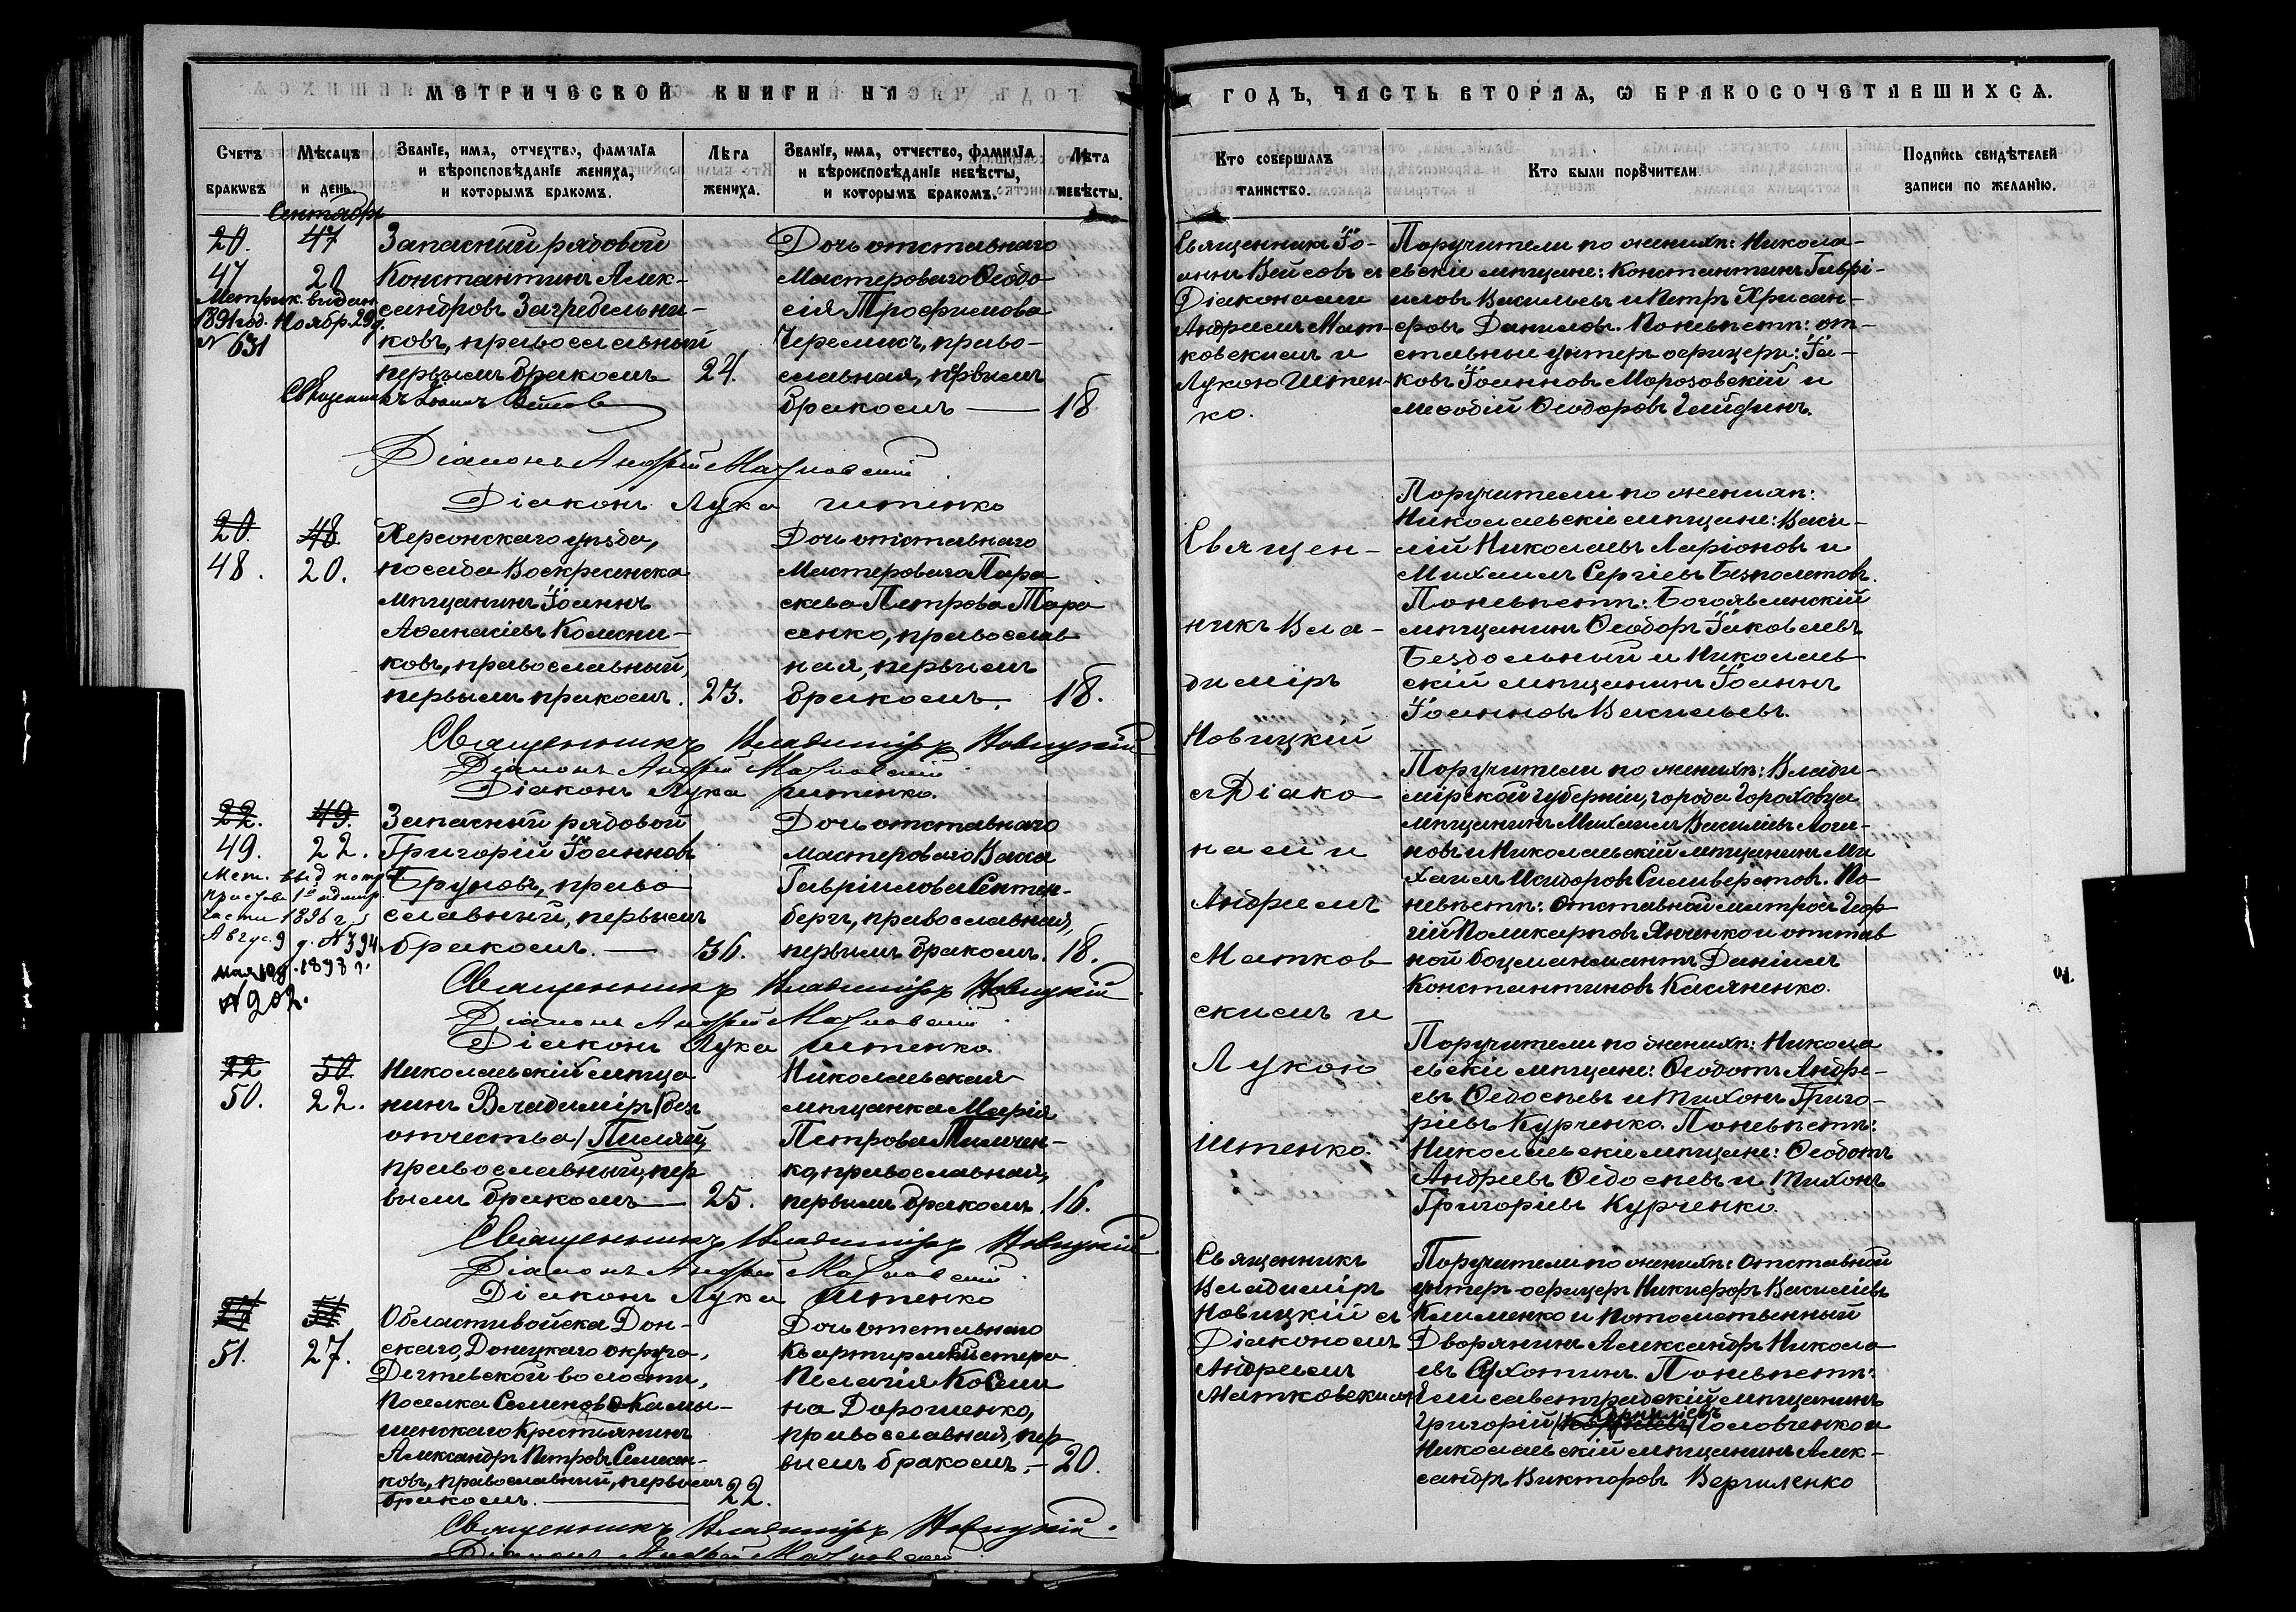 МЕТРИЧЕСКОЙ КНИГИ НА
Счетъ браковъ
Мѣсяцъ и день.
Званїе, имя, отчество, фамилїа
и вѣроисповѣданїе жениха,
и которымъ бракомъ.
Лѣта
жениха.
Званїе, имя, отчество, фамилїа
и вѣроисповѣданїе невѣсты,
и которымъ бракомъ.
Лѣта
невѣсты.
Сентябрь
20. 47
47 20
Метрик. видан
1891 год. Ноябр. 29 д.
N 631
Запасный рядовой
Константинъ Алек-
сандровъ Загребельни-
ковъ, православный
первымъ бракомъ 24.
Дочь отставнаго
Мастероваго Ѳеодо-
сія Трофимова
православная, первымъ
бракомъ — 18
Священникъ Іоаннъ Вейсовъ
Діаконъ Андрей Матковскій
Діаконъ Лука Иштенко
20. 48
48. 20.
Херсонскаго уѣзда,
посада Воскресенска
мѣщанинъ Іоаннъ
Аѳанасіевъ Колесни-
ковъ, православный,
первымъ пракомъ. 23.
Дочь отставнаго
Мастероваго Пара
скева Петрова Тара
сенко, православ
ная, первымъ
бракомъ. 18.
Священникъ Владиміръ Новицкій
Діаконъ Андрей Матковскій
Діаконъ Лука Иштенко.
22. 49.
49. 22.
Мет. выд
части 1896 г.
Авгус. 9 д. N 394
мая 10 д. 1898 г.
N 902.
Запасный рядовой
Григорій Іоанновъ
Бруновъ, право
славный, первымъ
бракомъ. — 36.
Дочь отставнаго
мастероваго Васса
Гавріилова Сентен-
бергъ, православная,
первымъ бракомъ. 18.
Священникъ Владиміръ Новицкій
Діаконъ Андрей Матковскій
Діаконъ Лука Иштенко.
22 50
50. 22.
Николаевскій мѣща
нинъ Владиміръ /безъ
отчества/
православный, пер
вымъ бракомъ — 25.
Николаевская
мѣщанка Марія
Петрова
ко, православная,
первымъ бракомъ. 16.
Священникъ Владиміръ Новицкій
Діаконъ Андрей Матковскій
Діаконъ Лука Иштенко
51. 27.
Области войска Дон-
скаго, Донецкаго округа,
Дегтевской волости,
поселка Семеново Камы-
шенскаго Крестьянинъ
Александръ Петровъ Семен-
ковъ, православный, первымъ
бракомъ. — 22.
Дочь отставнаго
Квартирмейстера
Пелагія Косми
на Дорошенко,
православная, пер
вымъ бракомъ. — 20.
Священникъ Владиміръ Новицкій.
Діаконъ Андрей Матковскій.
ГОДЪ, ЧАСТЬ ВТОРАЯ, Ѡ БРАКОСОЧЕТАВШИХСЯ.
Кто совершалъ
таинство.
Кто были порꙋчители
Подпись свидѣтелей
записи по желанїю.
Священникъ Іо-
аннъ Вейсовъ съ
Діаконами
Андреемъ Мат-
ковскимъ и
Лукою Иштен-
ко.
Поручители по женихѣ: Никола-
евскіе мѣщане: Константинъ Гаврі-
иловъ Васильевъ и Петръ Хрисан-
фовъ Даниловъ. По невѣстѣ: от-
ставные унтеръ офицеры: Іа-
ковъ Іоанновъ Морозовскій и
Меѳодій Ѳеодоровъ
Поручители по женихѣ:
Николаевскіе мѣщане: Васи-
лій Николаевъ Ларіоновъ и
Михаилъ Сергіевъ Безполетовъ.
По невѣстѣ: Богоявленскій
мѣщанинъ Ѳеодоръ Іаковлевъ
Бездольный и Николаев
скій мѣщанинъ Іоаннъ
Іоанновъ Васильевъ.
Священ-
никъ Вла-
диміръ
Новицкій
съ Діако
нами
Андреемъ
Матков
скимъ и
Лукою
Иштенко.
Поручители по женихѣ: Влади-
мірской губерніи, города Гороховца
мѣщанинъ Михаилъ Василіевъ Логи-
новъ и Николаевскій мѣщанинъ Ми
хаилъ Исидоровъ Силиверстовъ. По
невѣстѣ: отставной матросъ Геор
гій Поликарповъ Янченко и отстав
ной боцманматъ Даніилъ
Константиновъ Касяненко.
Поручители по женихѣ: Никола
евскіе мѣщане: Ѳеодотъ Андре-
евъ Ѳедосѣевъ и Тихонъ Григо-
ріевъ Курченко. По невѣстѣ:
Николаевскіе мѣщане: Ѳеодотъ
Андреевъ Ѳедосѣевъ и Тихонъ
Григоріевъ Курченко.
Священникъ
Владиміръ
Новицкій съ
Діакономъ
Андреемъ
Матковскимъ
Поручители по женихѣ: отставной
унтеръ-офицеръ Никифоръ Василіевъ
Клименко и потомственный
Дворянинъ Александръ Никола
евъ Сухотинъ. По невѣстѣ:
Елисаветградскій мѣщанинъ
Григорій Корниліевъ Головченко и
Николаевскій мѣщанинъ Алек-
сандръ Викторовъ Вергиленко